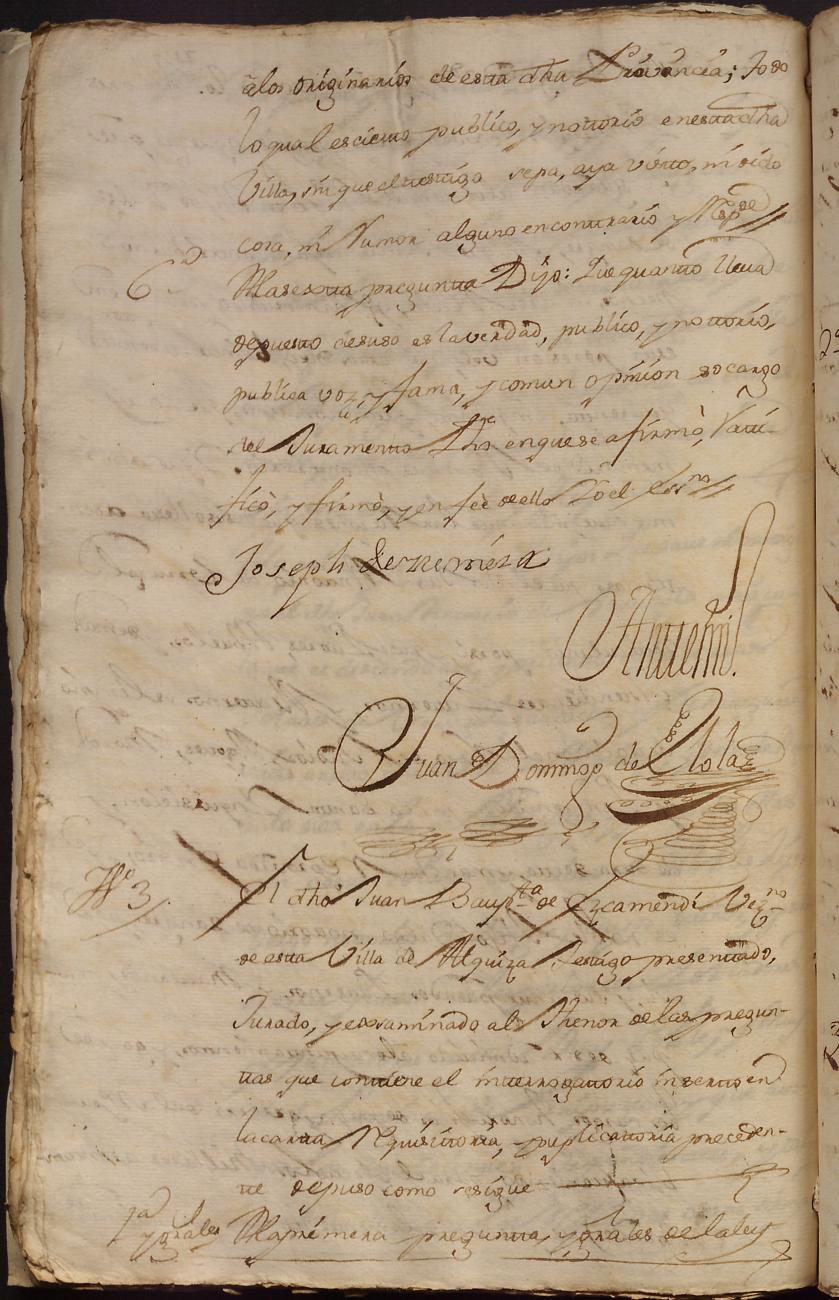 alos originarios de esta dha Provincia; Todo
lo qual es cierto publico, y nottorio en esta dha
Villa, sin que el testigo sepa, aya visto, ni oido
cosa, ni Rumor alguno en contrario y Respde
6a
Ala sexta pregunta Dijo: Que quanto lleva
depuesto desuso es la verdad, publico, y nottorio,
publica voz, y fama, y comun opinion so cargo
del Juramento dho en que se afirmò, Ratti-
ficò, y firmò, y en feè de ello Yo el Essno
Joseph de
Antemi.
Juan Domingo de
No 3
El dho Juan Baupta de Ezcamendi Vezno
de esta Villa de Alquiza testigo presentado,
Jurado, y examinado al thenor de las pregun-
tas que contiene el interrogattorio inserto en
la carta Requisitoria, suplicattoria preceden-
te depuso como se sigue
1a y grales
Ala primera pregunta, y grales de la ley